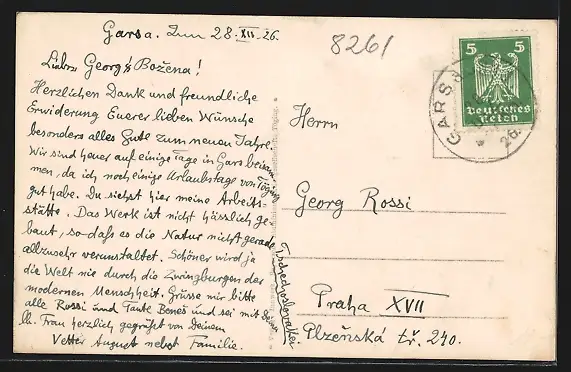 Gars a. Inn 28.XII.26.
8261
5 5
Deutsches
Reich
GARS
26.
Lieber Georg & Božena!
Herzlichen Dank und freundliche
Erwiderung Euerer lieben Wünsche
besonders alles Gute zum neuen Jahre.
Wir sind heuer auf einige Tage in Gars beisam-
men, da ich noch einige Urlaubstage von Töging
gut habe. Du siehst hier meine Arbeits-
stätte. Das Werk ist nicht hässlich ge-
baut, so daß es die Natur nicht gerade
allzusehr verunstaltet. Schöner wird ja
die Welt nie durch die Zwingburgen der
modernen Menschheit. Grüsse mir bitte
alle Rossi und Tante Beneš und sei mit Deiner
lb. Frau herzlich gegrüßt von Deinem
Vetter August nebst Familie.
Herrn
Georg Rossi
Praha XVII
Plzeňská tř. 240.
Tschechoslovakei